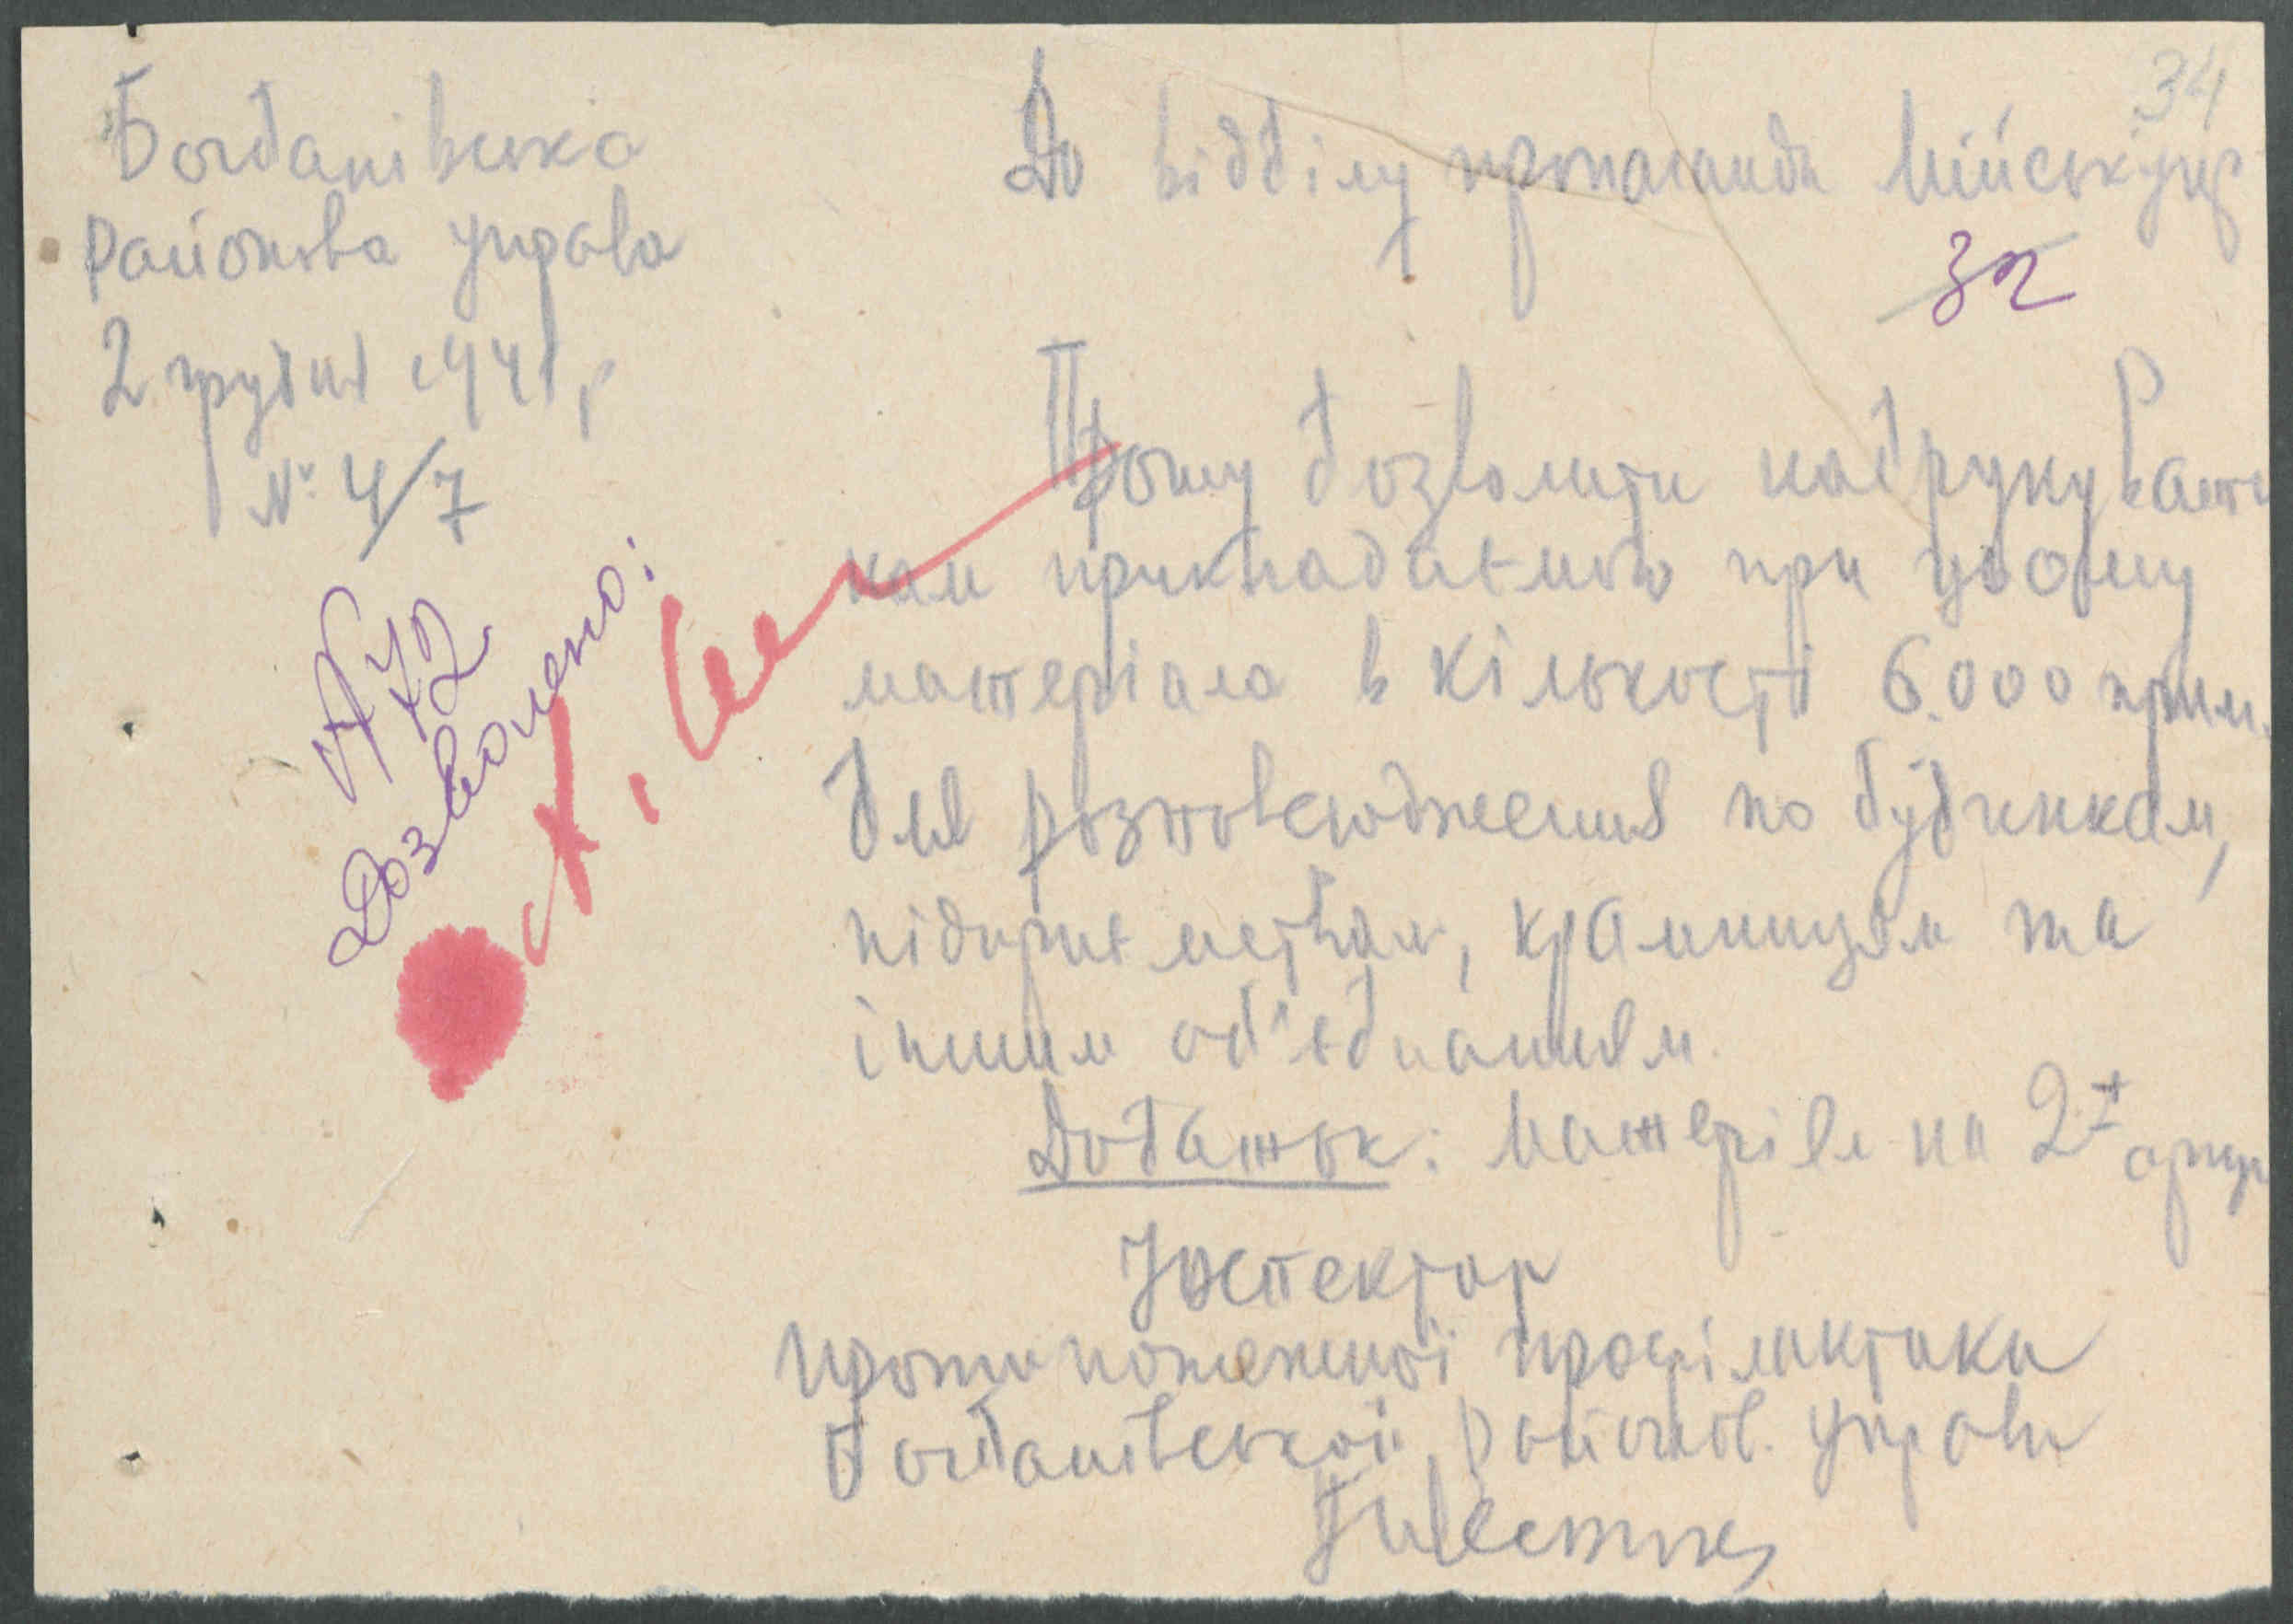 34
Богданівська
районова управа
2 грудня 1941 р
№ 4/7
До відділу пропаганди Міськупр
32
Дозволено:
Прошу дозволити надрукувати
нам прикладаємого при цьому
матеріала в кількості 6.000 прим.
для розповсюдження по будинкам,
підприємствам, крамницям та
іншим об'єднанням.
Додаток: матеріял на 2х аркуш
Інспектор
протипожежної профілактики
Богданівської районов. управи